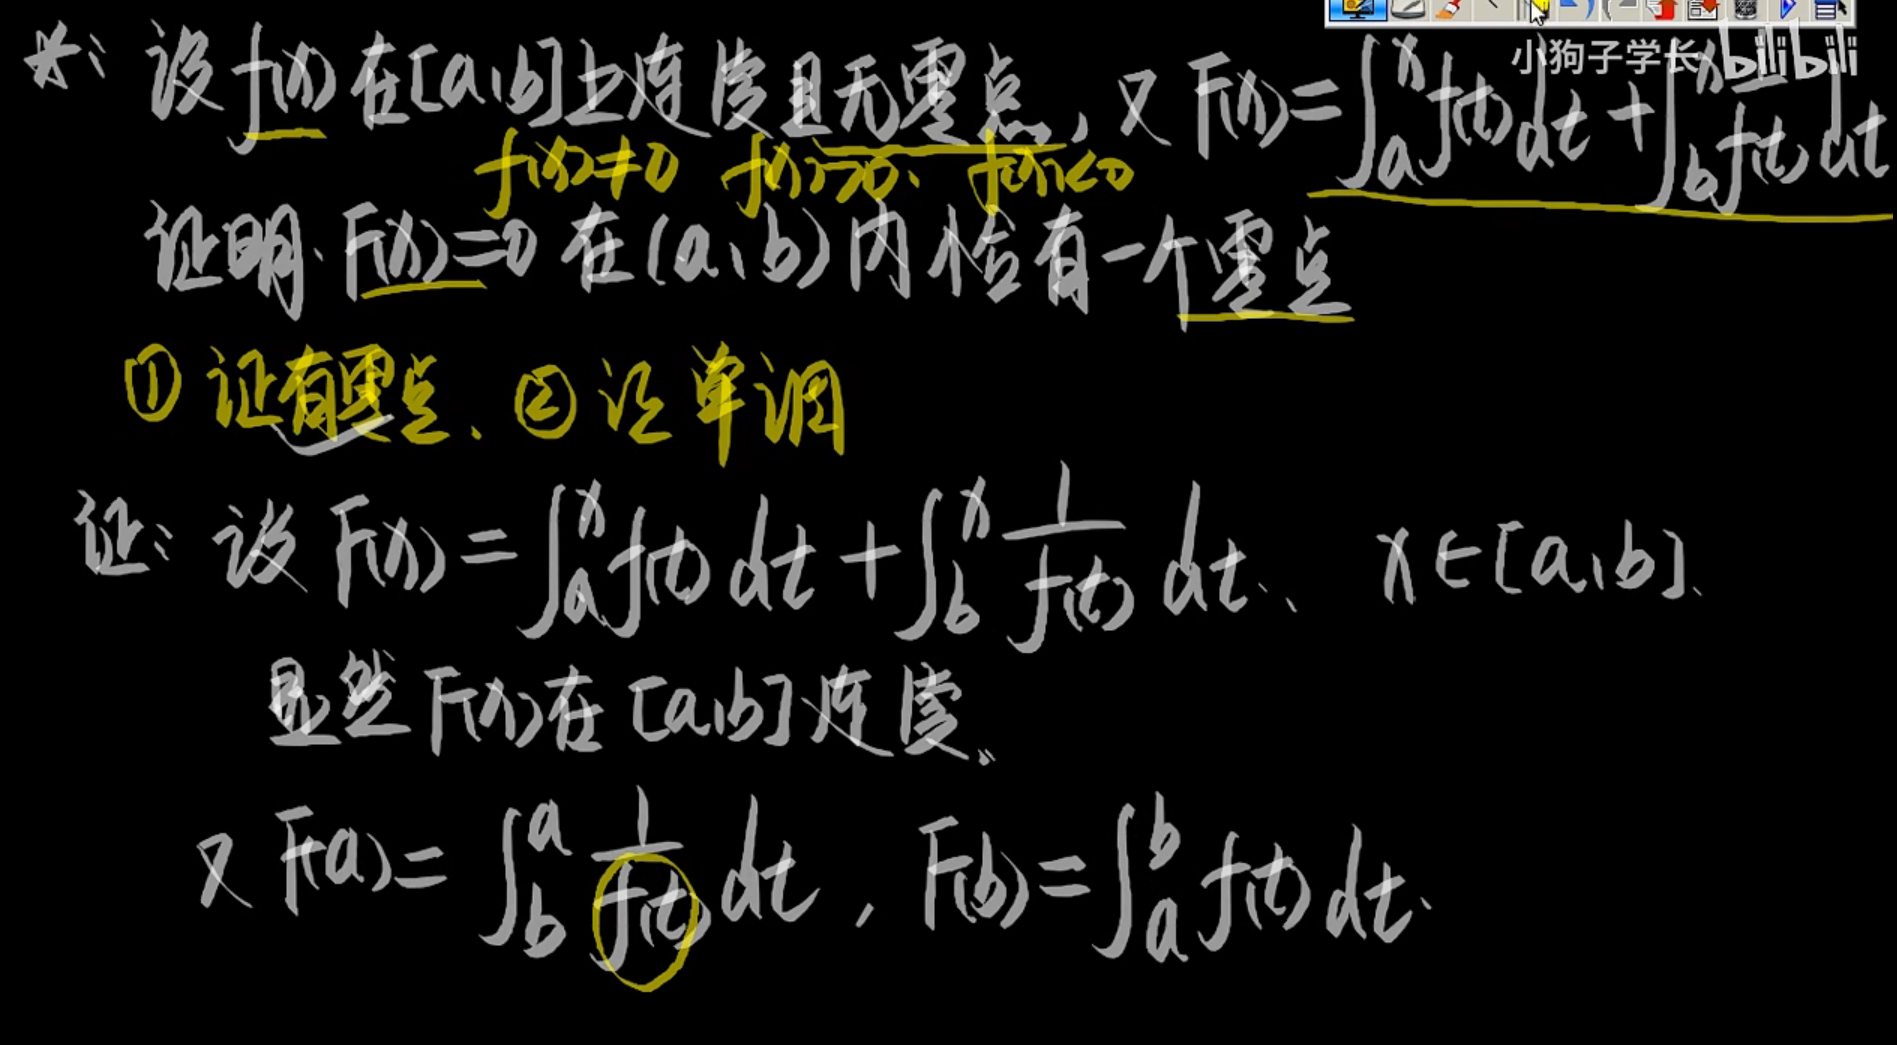 小狗子学长 bilibili
*: 设f(x)在[a,b]上连续且无零点, 又F(x)=∫_a^x f(t)dt+∫_b^x 1/f(t) dt
f(x)≠0 f(x)>0. f(x)<0
证明. F(x)=0在(a,b)内恰有一个零点
① 证有零点、② 证单调
证: 设F(x)=∫_a^x f(t)dt+∫_b^x 1/f(t) dt、 x∈[a,b].
显然F(x)在[a,b]连续。
又F(a)=∫_b^a 1/f(t) dt, F(b)=∫_a^b f(t)dt.